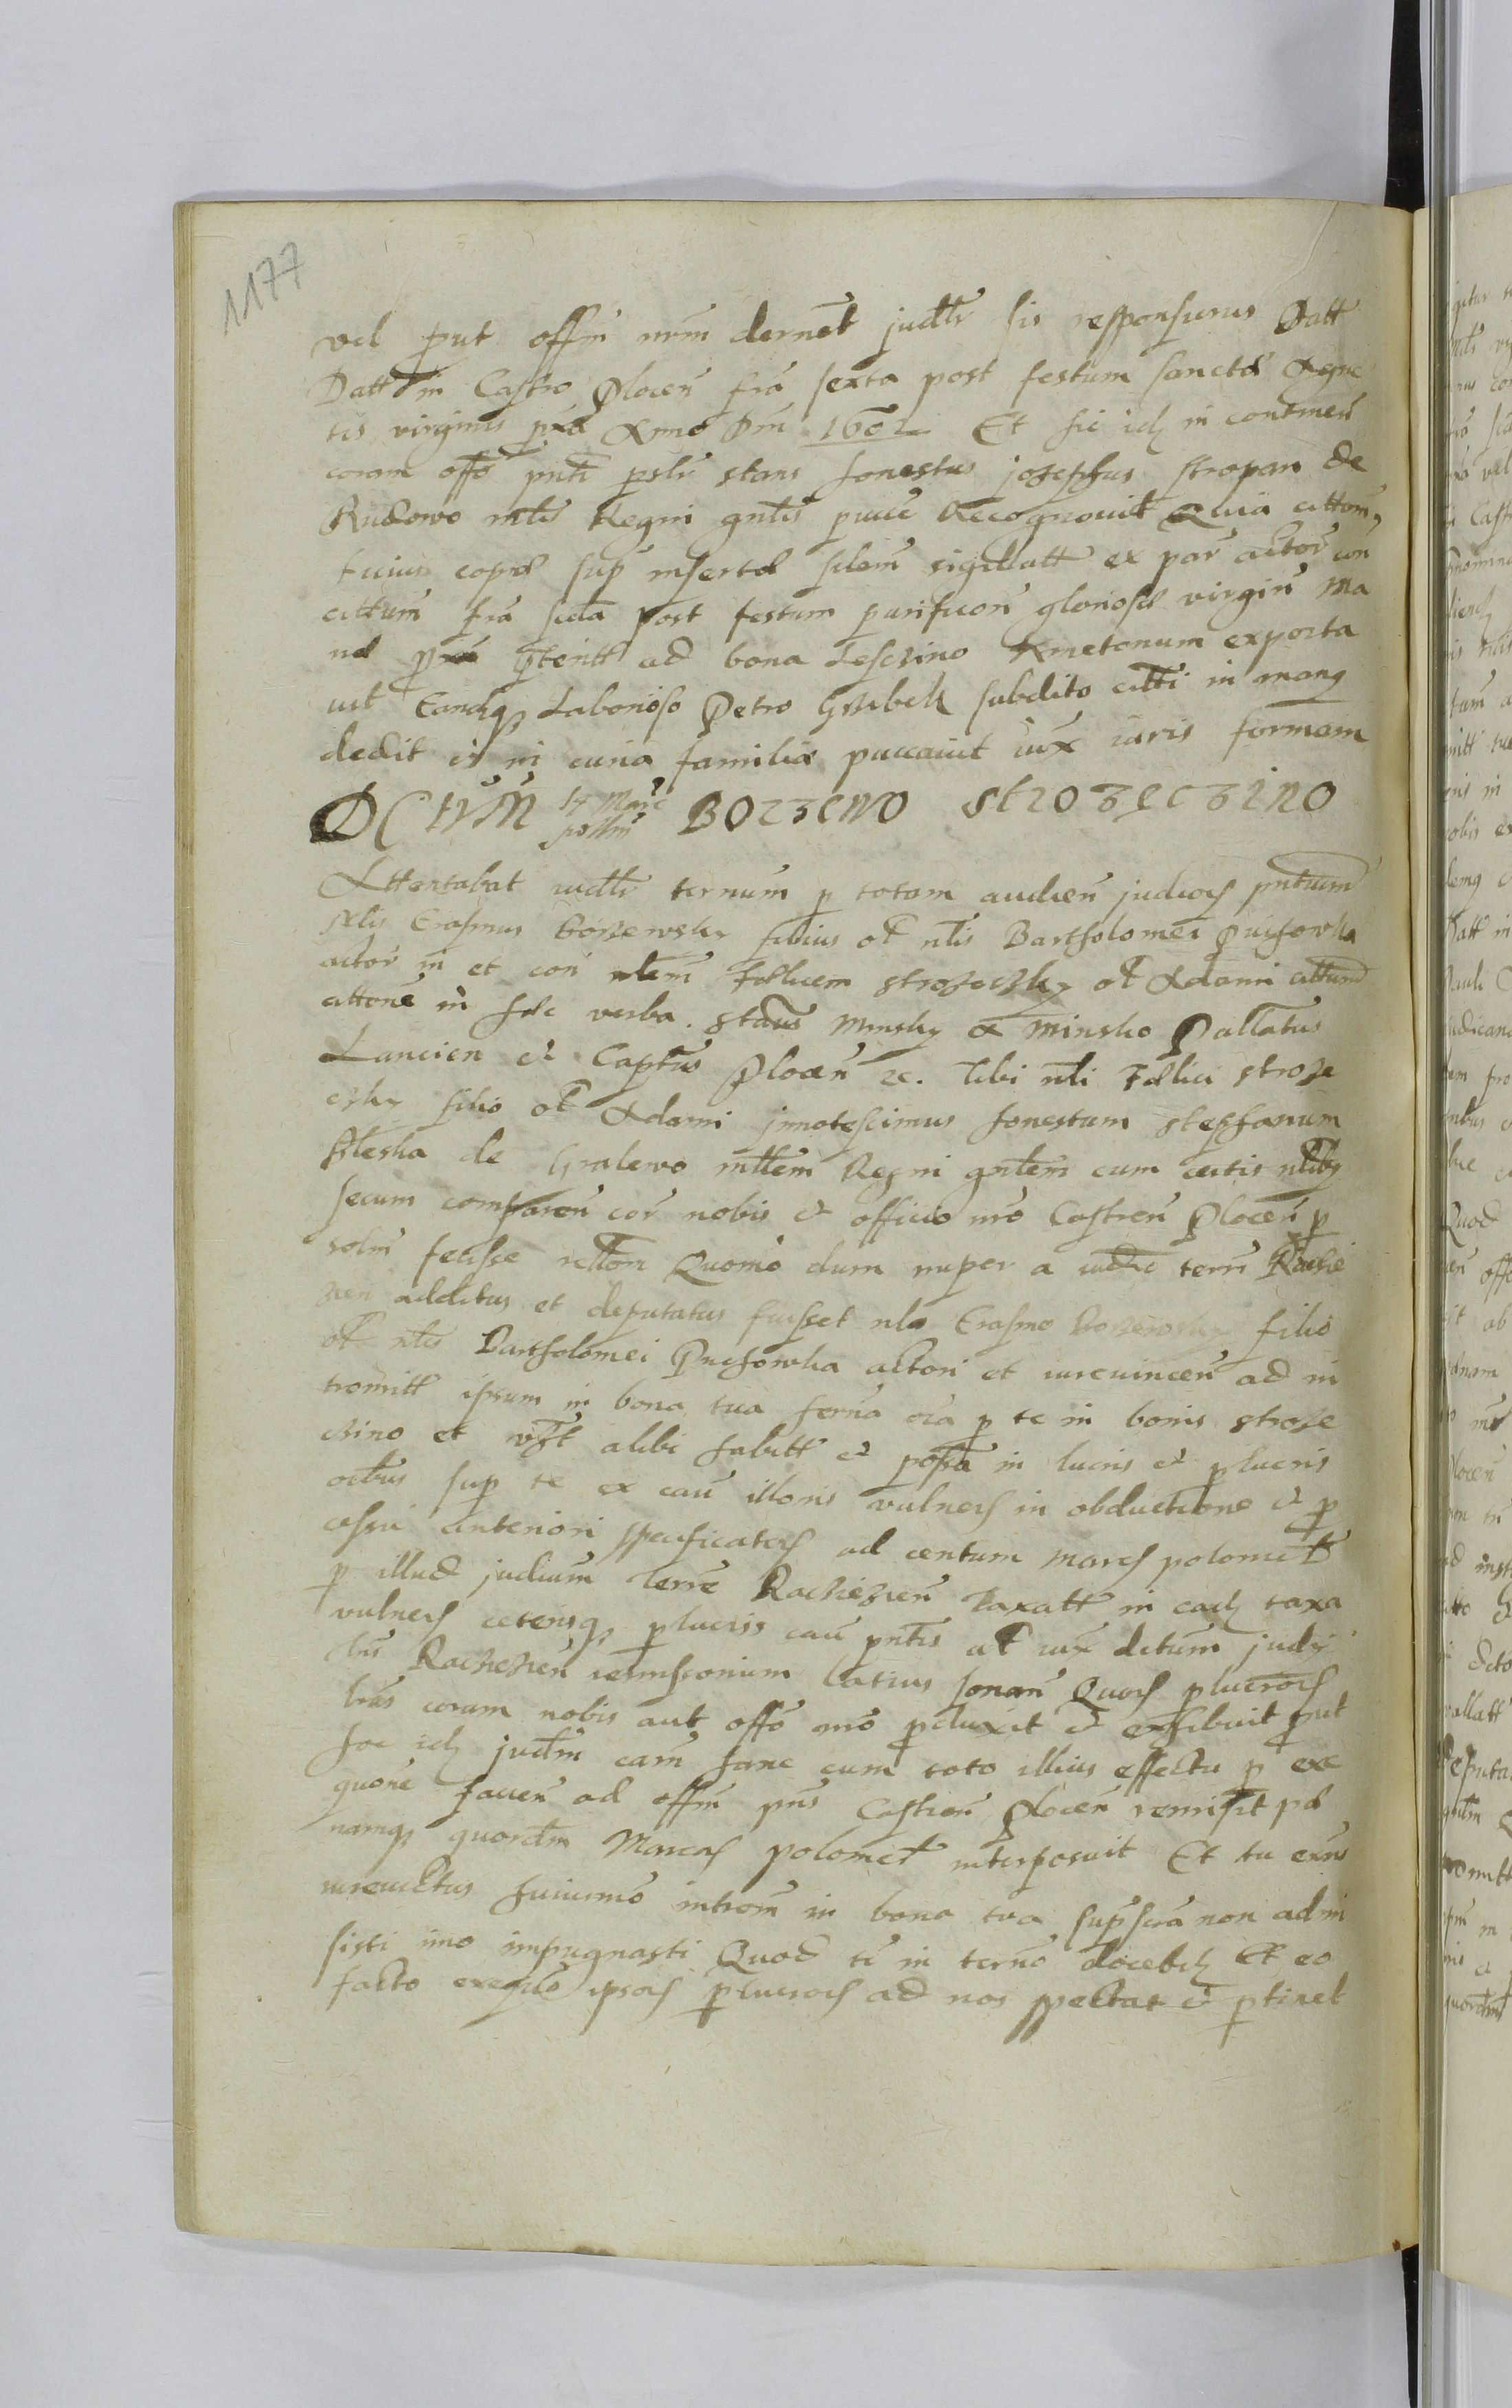 1177
vel put offm nrm dernet judlr sis responsurus Datt
Datt in Castro Plocen fra sexta post festum sanctæ Agne
tis virginis pxa Anno Dni 1602 Et sic idz in contmen
coram offo pnti pslr stans honestus josephus stropan de
Rudowo mlis Regni gnlis puice Recognouit Quia cittom,
huius copiæ sup insertæ silem sigillatt ex par actor con
cittum fra scda post festum purificon gloriosæ virgin Ma
riæ pxa pteritt ad bona Leschino Kmetonum exporta
uit Eandqz Laborioso Petro Grzibek subdito citti in mang
dedit is in curia familiæ puccauit iux iuris formam
DCTVM 14 Marc pollm BORZEWO STROZECZINO
Attentabat iudlr ternum p totam audien judiors pntium
Nlis Erasmus Borzewsky filius ol nlis Bartholomei Puchowka
actor in et con nlem Fælicem strozeczky ol Adami cittum
cittone in hæc verba. Staus Minsky a Minsko Pallatus
Lancicien et Captus Plocen zc. Tibi nli Fælici stroze
czky filio ol Adami jnnotescimus honestum stephanum
Pleska de Gralewo mllem Regni gnlem cum certis nlibz
secum comparen cor nobis et officio nro Castren Plocen p
solm fecisse rellom Quomo dum nuper a iudic terri Raczie
zien additus et deputatus fuisset nlo Erasmo Borzewsky filio
ol nlis Bartholomei Puchowka actori et iureuincen ad in
tromitt ipsum in bona tua herna oia p te in bonis stroze
czino et vbt alibi habitt et possa in lucris et plucris
oibus sup te ex cau illoris vulners in obductione et p
cessu anteriori specificatrs ad centum marcs polonicæ
p illud judicium Terre Raczieznen taxatt in eadz taxa
vulners ceterisqz plucris cau pntis al iux dictum judy
clis Raczieznen remissionum latius sonan Quars plucrors
lras coram nobis aut offo nro pduxit et exhibuit put
hoc idz judm cam hanc cum toto illius effectu p exe
quone facien ad offm pns Castren Plocen remisit pæ
namqz quordm Marcas polonicæ interposuit Et tu exns
iureuictus huiusmo introm in bona tua supscra non admi
sisti imo impugnasti Quod ti in terno docebz Et eo
facto exequo ipsors plucrors ad nos spectat et ptinet